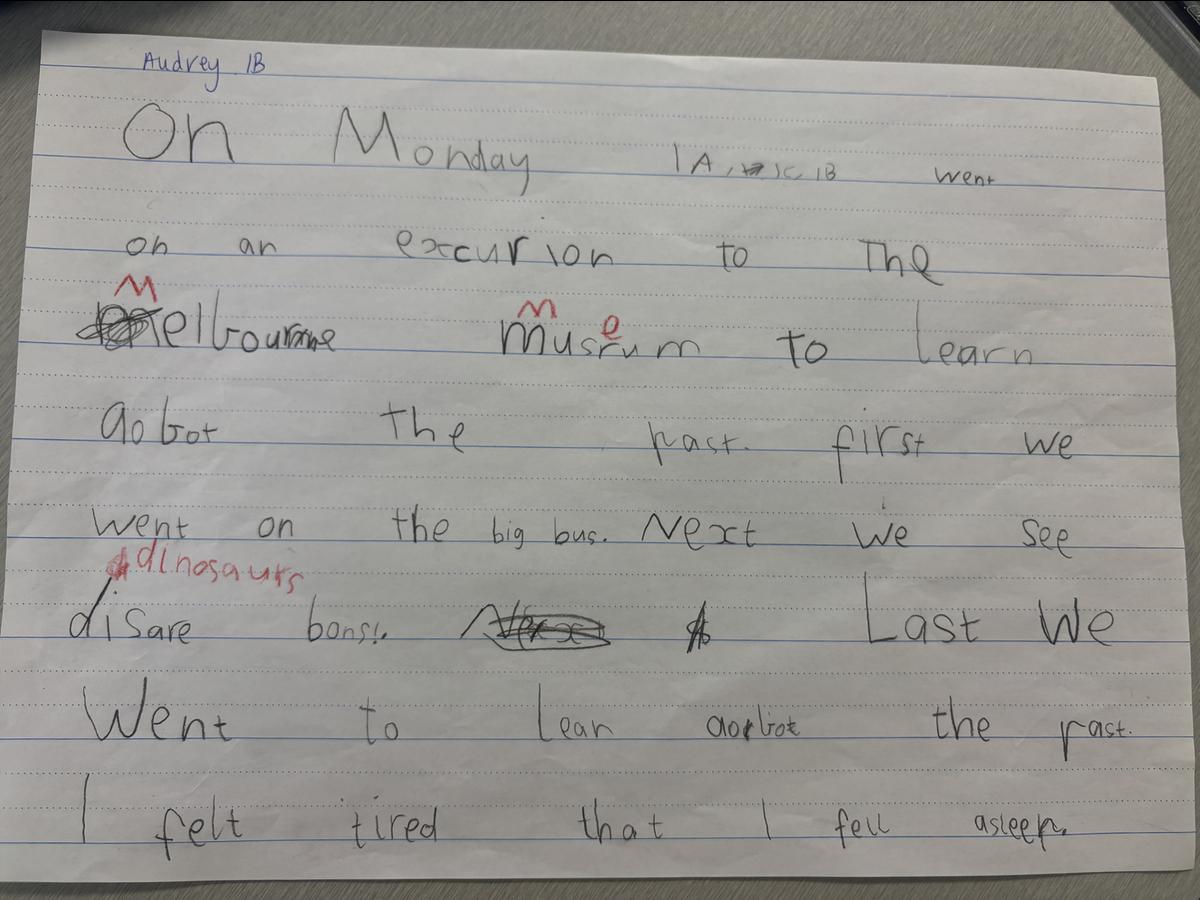 Audrey 1B
On Monday 1A, 1C, 1B went
on an excurion to The
M M e
elbourne museum to learn
aobot the past. first we
went on the big bus. Next we see
dinosaurs
disare bons!. Last We
Went to lean aorbot the past.
I felt tired that I fell asleep.